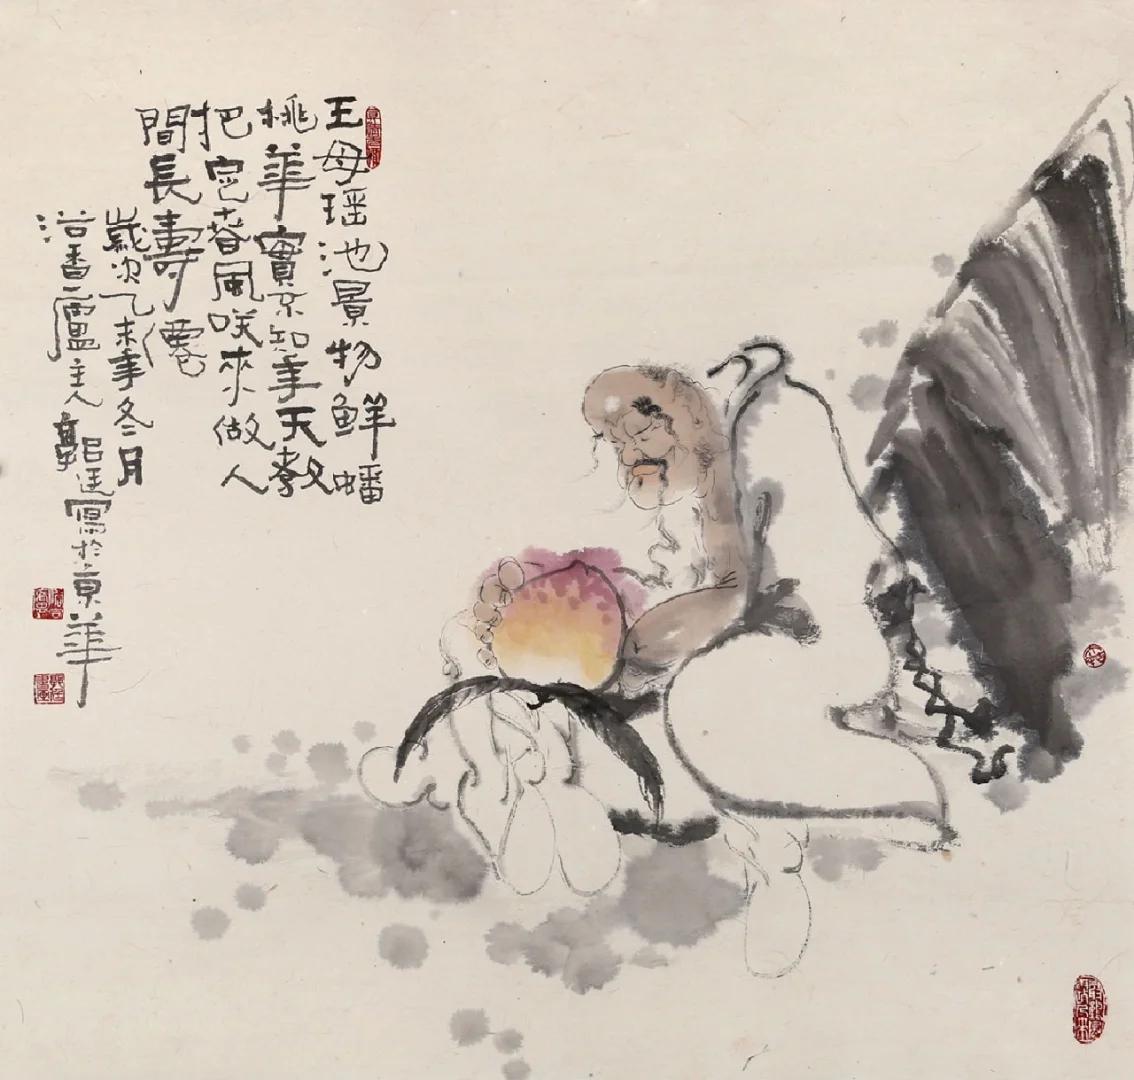 王母瑶池景物鮮蟠
桃華實不知年天教
把定春風咲來做人
間長壽僊
歲次乙未年冬月
香廬主人寫於京華